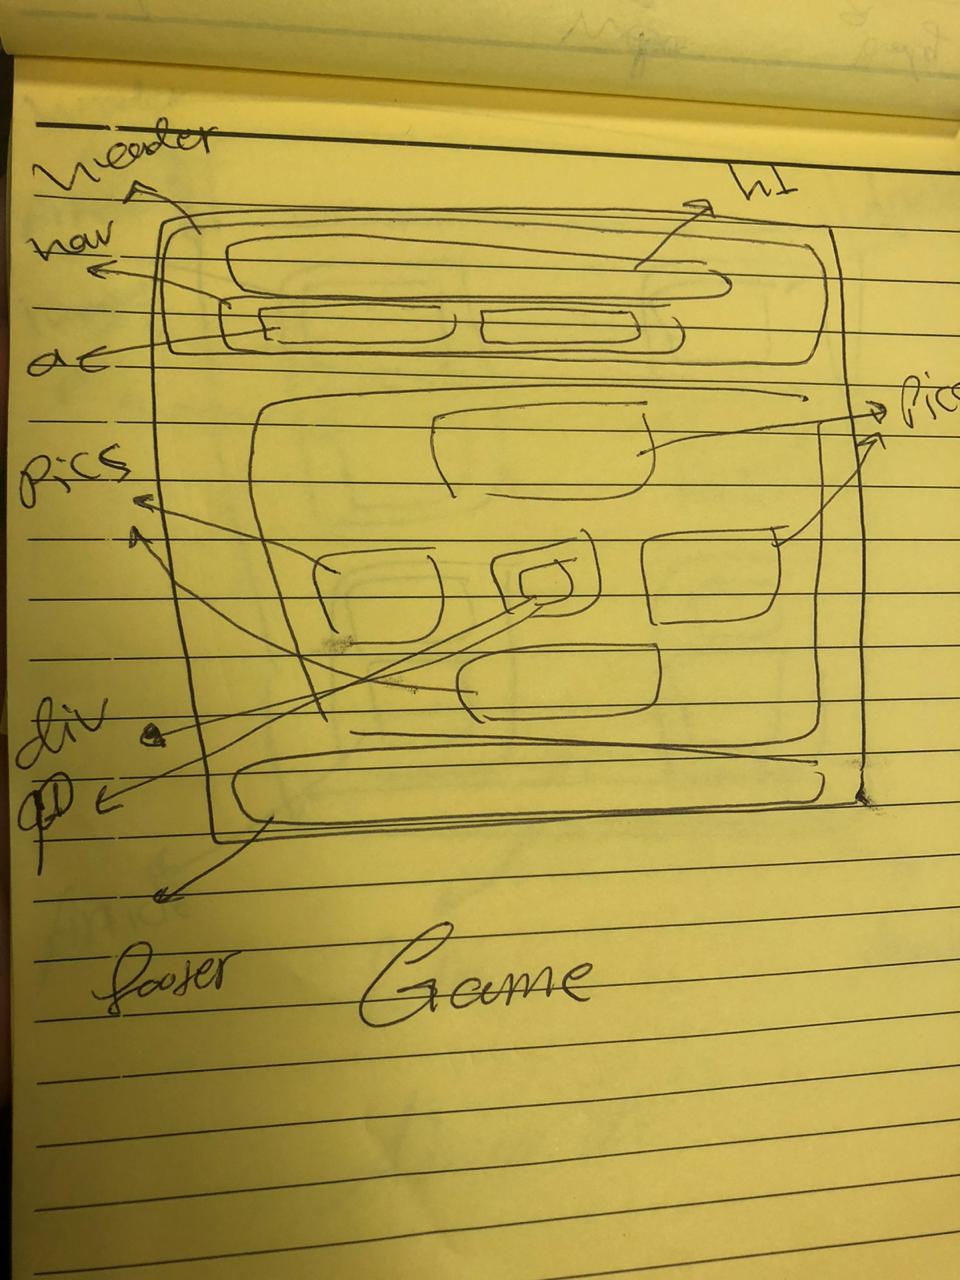 header
h1
nav
a
Pics
Pics
div
P
footer
Game